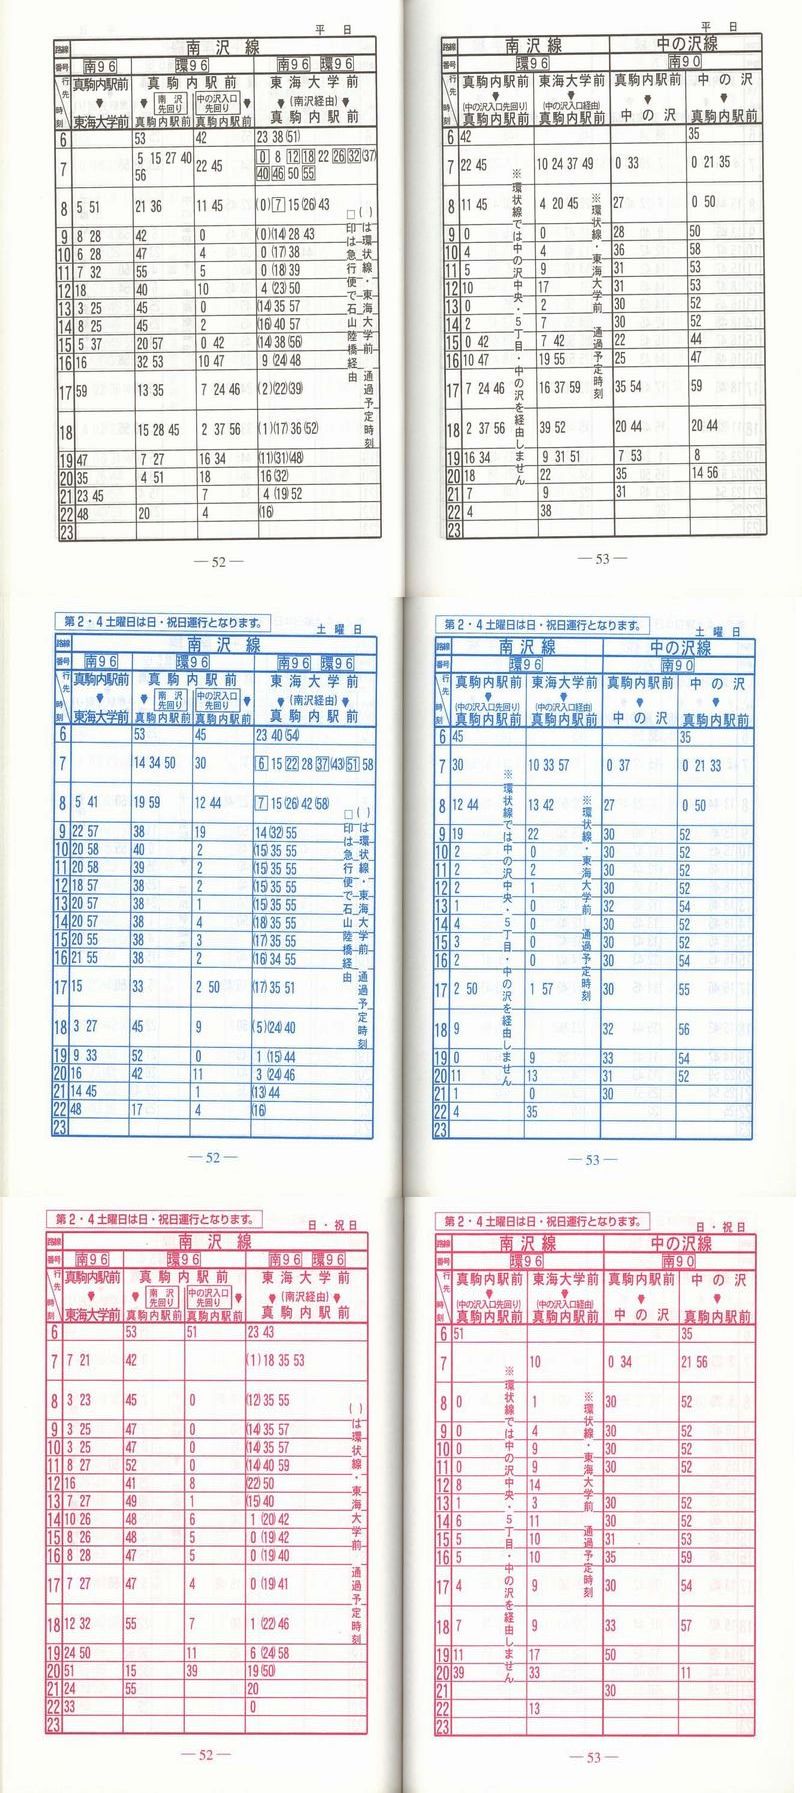 平 日
路線 南 沢 線
番号 南96 環96 南96 環96
行先 時刻 真駒内駅前 ▼ 東海大学前 真駒内駅前 ▼ 南沢先回り 真駒内駅前 中の沢入口先回り ▼ 真駒内駅前 東海大学前 ▼(南沢経由)▼ 真駒内駅前
6 53 42 23 38 (51)
7 5 15 27 40 56 22 45 0 8 12 18 22 26 32 (37) 40 46 50 55
8 5 51 21 36 11 45 (0) 7 15 (26) 43
9 8 28 42 0 (0) (14) 28 43
10 6 28 47 4 0 (17) 38
11 7 32 55 5 0 (18) 39
12 18 40 10 4 (23) 50
13 3 25 45 0 (14) 35 57
14 8 25 45 2 (16) 40 57
15 5 37 20 57 0 42 (14) 38 (56)
16 16 32 53 10 47 9 (24) 48
17 59 13 35 7 24 46 (2) (22) (39)
18 15 28 45 2 37 56 (1) (17) 36 (52)
19 47 7 27 16 34 (11) (31) (48)
20 35 4 51 18 16 (32)
21 23 45 7 4 (19) 52
22 48 20 4 (16)
23
( )は環状線・東海大学前 通過予定時刻
□印は急行便で石山陸橋経由
― 52 ―
平 日
路線 南 沢 線 中の沢線
番号 環96 南90
行先 時刻 真駒内駅前 ▼ (中の沢入口先回り) 真駒内駅前 東海大学前 ▼ (中の沢入口経由) 真駒内駅前 真駒内駅前 ▼ 中 の 沢 中 の 沢 ▼ 真駒内駅前
6 42 35
7 22 45 10 24 37 49 0 33 0 21 35
8 11 45 4 20 45 27 0 50
9 0 0 28 50
10 4 4 36 58
11 5 9 31 53
12 10 17 31 53
13 0 2 30 52
14 2 7 30 52
15 0 42 7 42 22 44
16 10 47 19 55 25 47
17 7 24 46 16 37 59 35 54 59
18 2 37 56 39 52 20 44 20 44
19 16 34 9 31 51 7 53 8
20 18 22 35 14 56
21 7 9 31
22 4 38
23
※環状線では中の沢中央・5丁目・中の沢を経由しません
※環状線・東海大学前 通過予定時刻
― 53 ―
第2・4土曜日は日・祝日運行となります。 土 曜 日
路線 南 沢 線
番号 南96 環96 南96 環96
行先 時刻 真駒内駅前 ▼ 東海大学前 真駒内駅前 ▼ 南沢先回り 真駒内駅前 中の沢入口先回り ▼ 真駒内駅前 東海大学前 ▼(南沢経由)▼ 真駒内駅前
6 53 45 23 40 (54)
7 14 34 50 30 6 15 22 28 37 (43) 51 58
8 5 41 19 59 12 44 7 15 (26) 42 (58)
9 22 57 38 19 14 (32) 55
10 20 58 40 2 (15) 35 55
11 20 58 39 2 (15) 35 55
12 18 57 38 2 (15) 35 55
13 20 57 38 1 (15) 35 55
14 20 57 38 4 (18) 35 55
15 20 55 38 3 (17) 35 55
16 21 55 38 2 (16) 34 55
17 15 33 2 50 (17) 35 51
18 3 27 45 9 (5) (24) 40
19 9 33 52 0 1 (15) 44
20 16 42 11 3 (24) 46
21 14 45 1 (13) 44
22 48 17 4 (16)
23
( )は環状線・東海大学前 通過予定時刻
□印は急行便で石山陸橋経由
― 52 ―
第2・4土曜日は日・祝日運行となります。 土 曜 日
路線 南 沢 線 中の沢線
番号 環96 南90
行先 時刻 真駒内駅前 ▼ (中の沢入口先回り) 真駒内駅前 東海大学前 ▼ (中の沢入口経由) 真駒内駅前 真駒内駅前 ▼ 中 の 沢 中 の 沢 ▼ 真駒内駅前
6 45 35
7 30 10 33 57 0 37 0 21 33
8 12 44 13 42 27 0 50
9 19 22 30 52
10 2 0 30 52
11 2 2 30 52
12 2 1 30 52
13 1 0 32 54
14 4 0 30 52
15 3 0 30 52
16 2 0 30 54
17 2 50 1 57 30 55
18 9 32 56
19 0 9 33 54
20 11 13 31 52
21 1 0 30
22 4 35
23
※環状線では中の沢中央・5丁目・中の沢を経由しません
※環状線・東海大学前 通過予定時刻
― 53 ―
第2・4土曜日は日・祝日運行となります。 日・祝日
路線 南 沢 線
番号 南96 環96 南96 環96
行先 時刻 真駒内駅前 ▼ 東海大学前 真駒内駅前 ▼ 南沢先回り 真駒内駅前 中の沢入口先回り ▼ 真駒内駅前 東海大学前 ▼(南沢経由)▼ 真駒内駅前
6 53 51 23 43
7 7 21 42 (1) 18 35 53
8 3 23 45 0 (12) 35 55
9 3 25 47 0 (14) 35 57
10 3 25 47 0 (14) 35 57
11 8 27 52 0 (14) 40 59
12 16 41 8 (22) 50
13 7 27 49 1 (15) 40
14 10 26 48 6 1 (20) 42
15 8 26 48 5 0 (19) 42
16 8 28 47 5 0 (19) 40
17 7 27 47 4 0 (19) 41
18 12 32 55 7 1 (22) 46
19 24 50 11 6 (24) 58
20 51 15 39 19 (50)
21 24 55 20
22 33 0
23
( )は環状線・東海大学前 通過予定時刻
― 52 ―
第2・4土曜日は日・祝日運行となります。 日・祝日
路線 南 沢 線 中の沢線
番号 環96 南90
行先 時刻 真駒内駅前 ▼ (中の沢入口先回り) 真駒内駅前 東海大学前 ▼ (中の沢入口経由) 真駒内駅前 真駒内駅前 ▼ 中 の 沢 中 の 沢 ▼ 真駒内駅前
6 51 35
7 10 0 34 21 56
8 0 1 30 52
9 0 4 30 52
10 0 9 30 52
11 0 9 30 52
12 8 14
13 1 3 30 52
14 6 11 30 52
15 5 10 31 53
16 5 10 35 59
17 4 9 30 54
18 7 9 33 57
19 11 17 50
20 39 33 11
21 30
22 13
23
※環状線では中の沢中央・5丁目・中の沢を経由しません
※環状線・東海大学前 通過予定時刻
― 53 ―